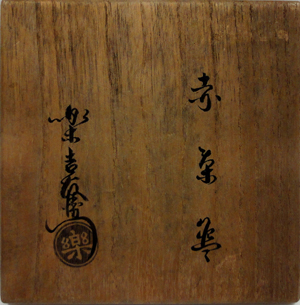 赤茶碗
樂吉左衛門
樂